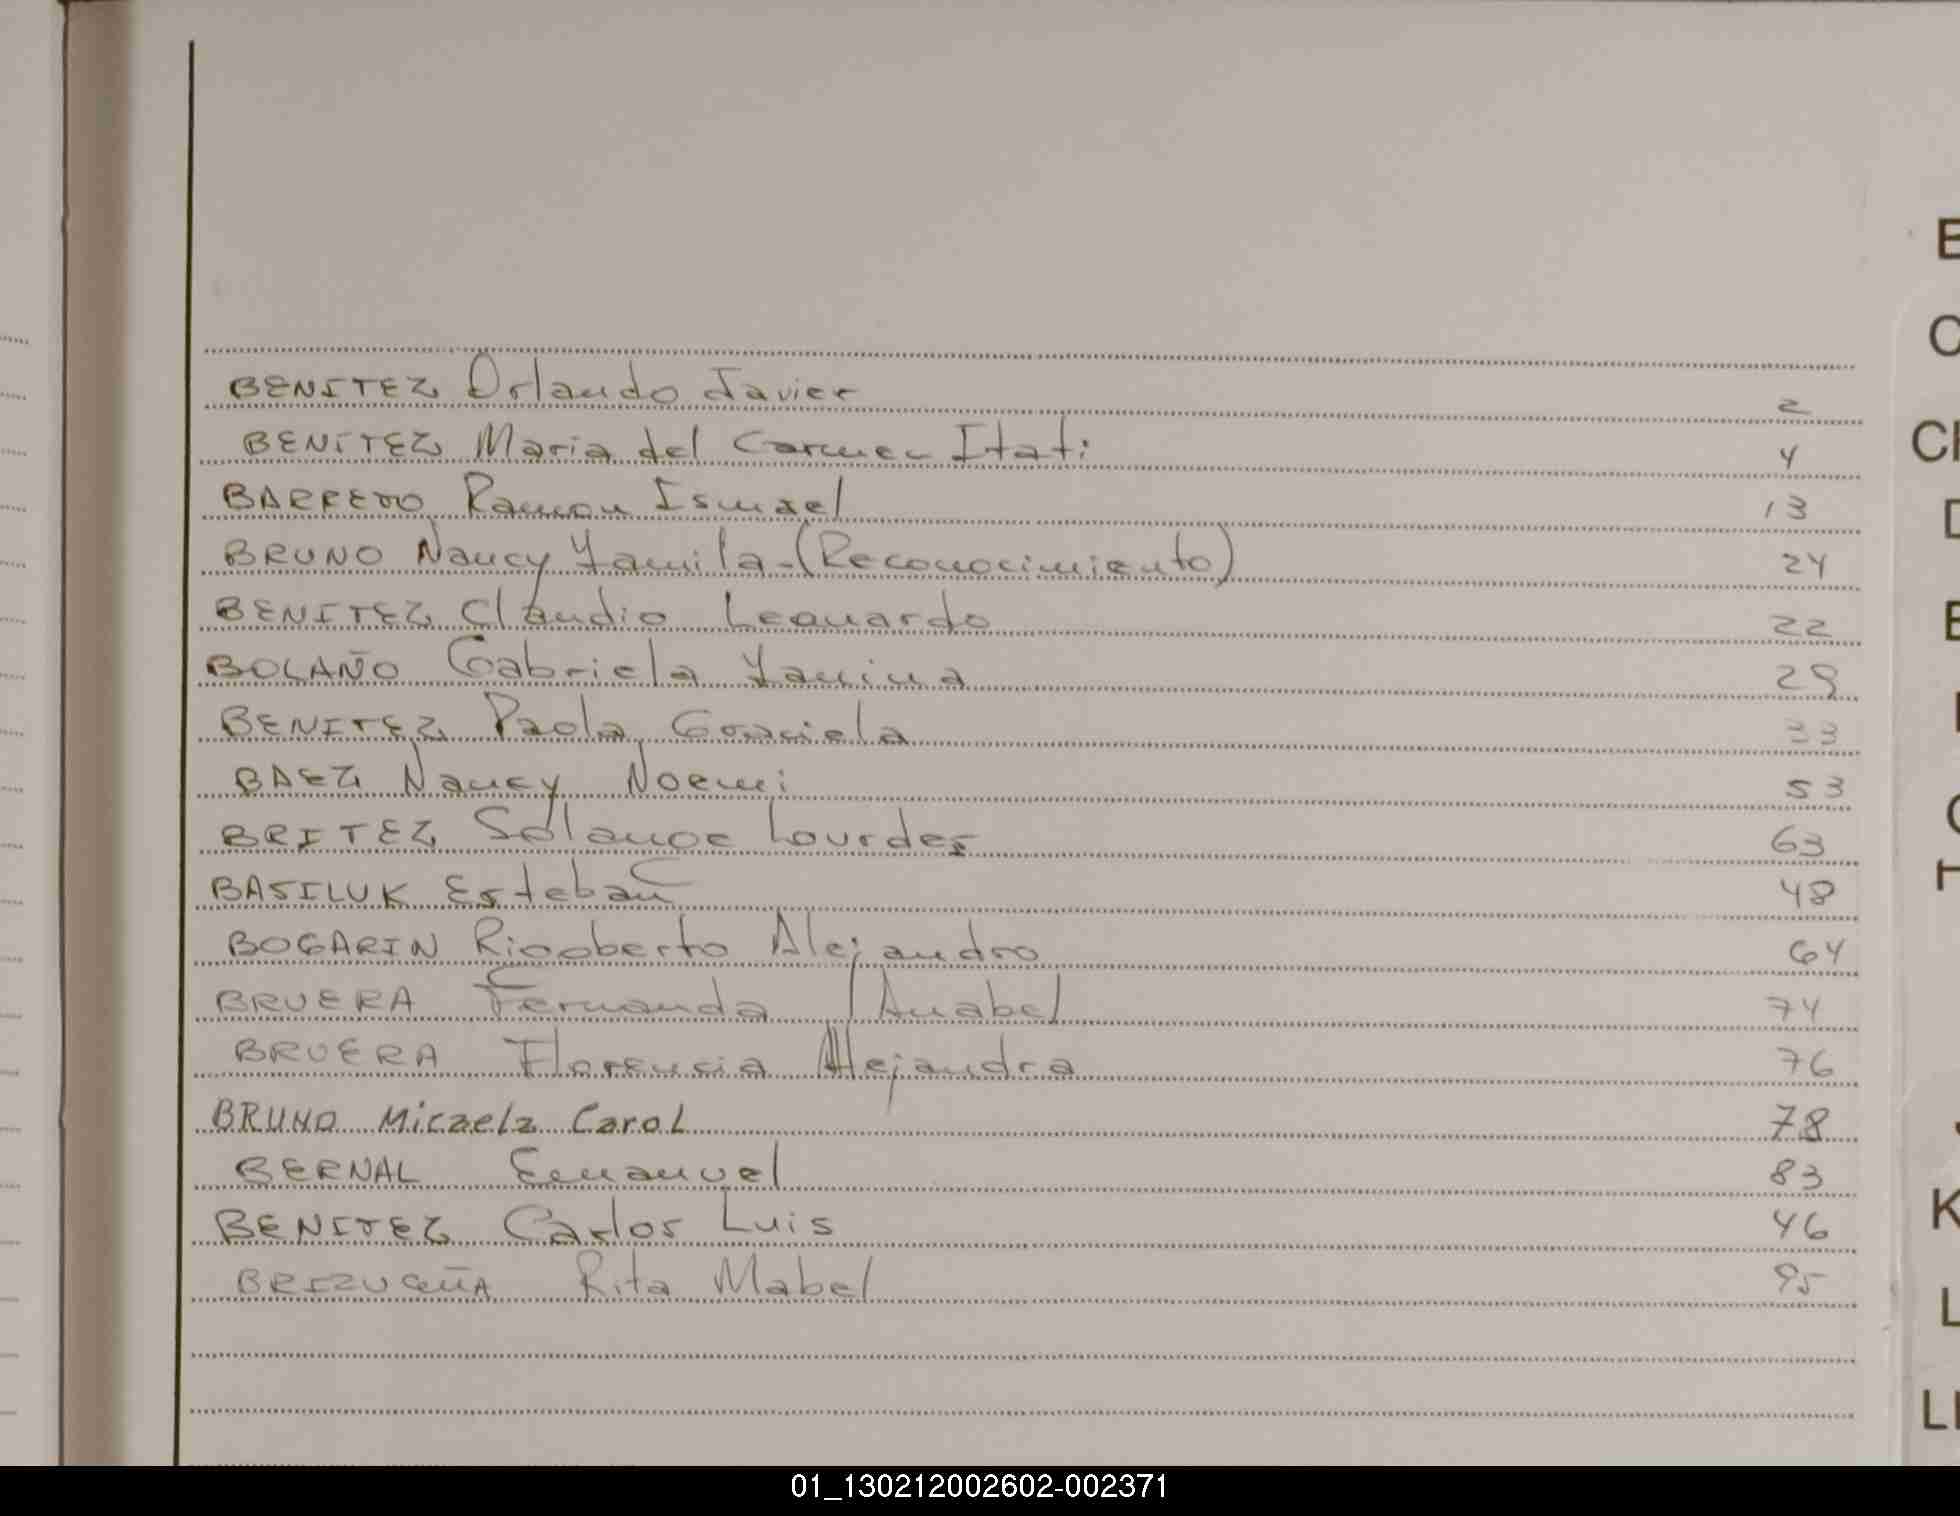 BENITEZ Orlando Javier 2
BENITEZ Maria del Carmen Itati 4
BARRETO Ramon Ismael 13
BRUNO Nancy Yamila-(Reconocimiento) 24
BENITEZ Claudio Leonardo 22
BOLAÑO Gabriela Yanina 29
BENITEZ Paola Graciela 33
BAEZ Nancy Noemi 53
BRITEZ Solange Lourdes 63
BASILUK Esteban 48
BOGARIN Rigoberto Alejandro 64
BRUERA Fernanda Anabel 74
BRUERA Florencia Alejandra 76
BRUNO Micaela Carol 78
BERNAL Emanuel 83
BENITEZ Carlos Luis 46
Rita Mabel 95
B
C
CH
D
E
F
G
H
J
K
L
LL
01_130212002602-002371